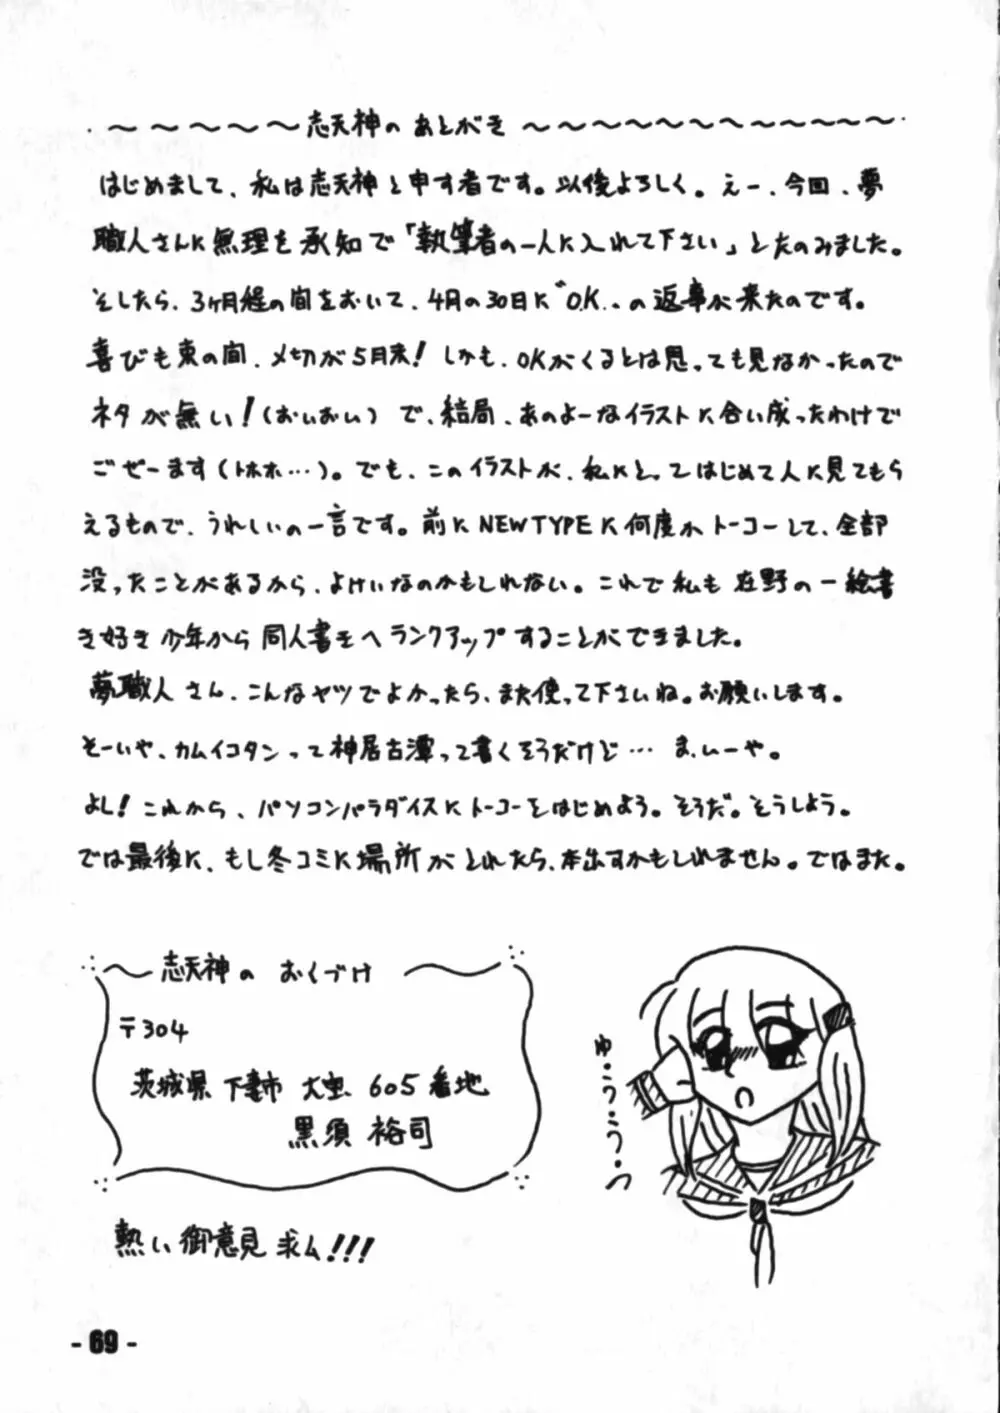 〜〜〜〜〜志天神のあとがき〜〜〜〜〜〜〜〜〜〜〜
はじめまして、私は志天神と申す者です。以後よろしく。えー、今回、夢
職人さんに無理を承知で「執筆者の一人に入れて下さい」とたのみました。
そしたら、3ヶ月程の間をおいて、4月の30日に〝O.K.〟の返事が来たのです。
喜びも束の間、〆切が5月末!しかも、OKがくるとは思っても見なかったので
ネタが無い!(おいおい)で、結局、あのよーなイラストに合い成ったわけで
ごぜーます(トホホ…)。でも、このイラストが、私にとってはじめて人に見てもら
えるもので、うれしいの一言です。前にNEWTYPEに何度かトーコーして、全部
没ったことがあるから、よけいなのかもしれない。これで私も在野の一絵書
き好き少年から同人書きへランクアップすることができました。
夢職人さん、こんなヤツでよかったら、また使って下さいね。お願いします。
そーいや、カムイコタンって神居古潭って書くそうだけど…ま、いーや。
よし!これから、パソコンパラダイスにトーコーをはじめよう。そうだ。そうしよう。
では最後に、もし冬コミに場所がとれたら、本出すかもしれません。ではまた。
〜志天神のおくづけ
〒304
茨城県下妻市大宝605番地
黒須裕司
熱い御意見求ム!!!
ゆ・う・う・つ
-69-